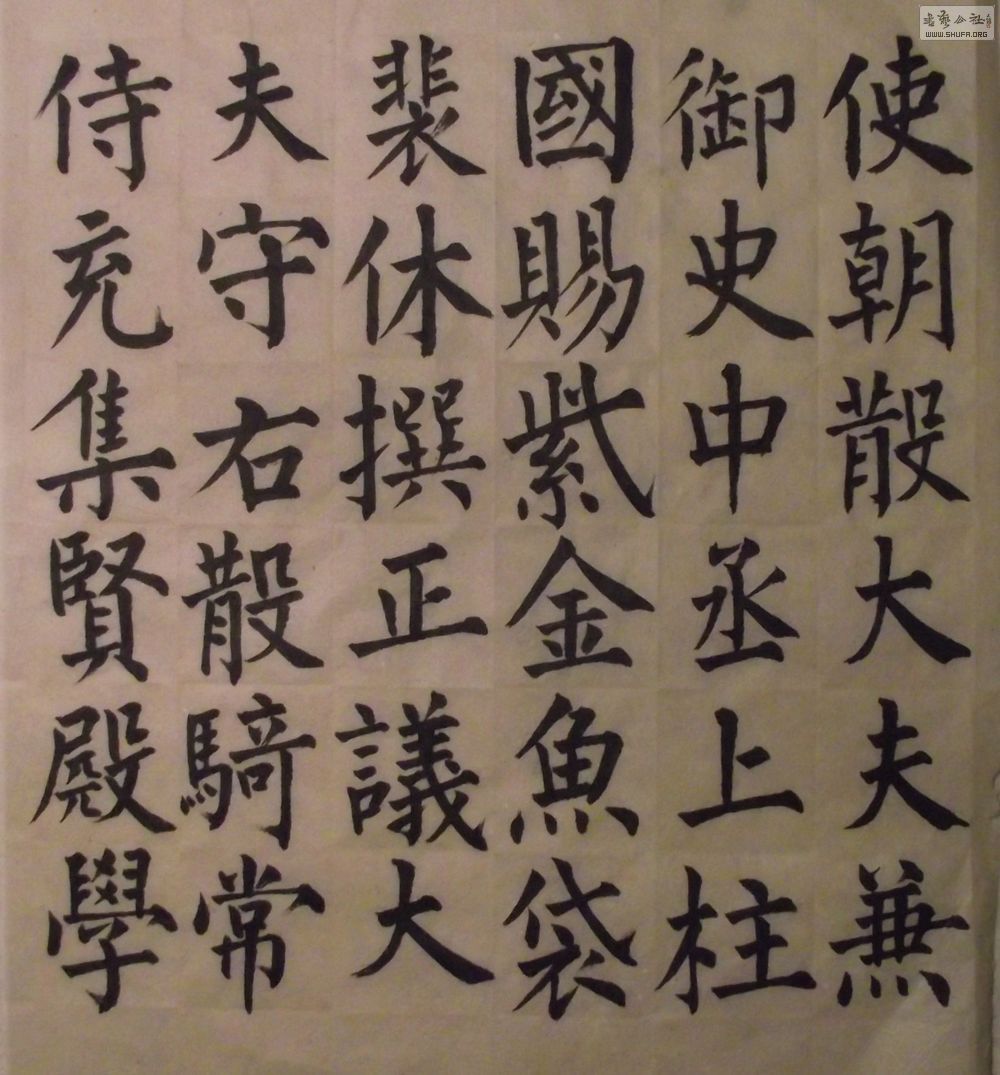 使朝散大夫兼
御史中丞上柱
國賜紫金魚袋
裴休撰正議大
夫守右散騎常
侍充集賢殿學
书艺公社
WWW.SHUFA.ORG